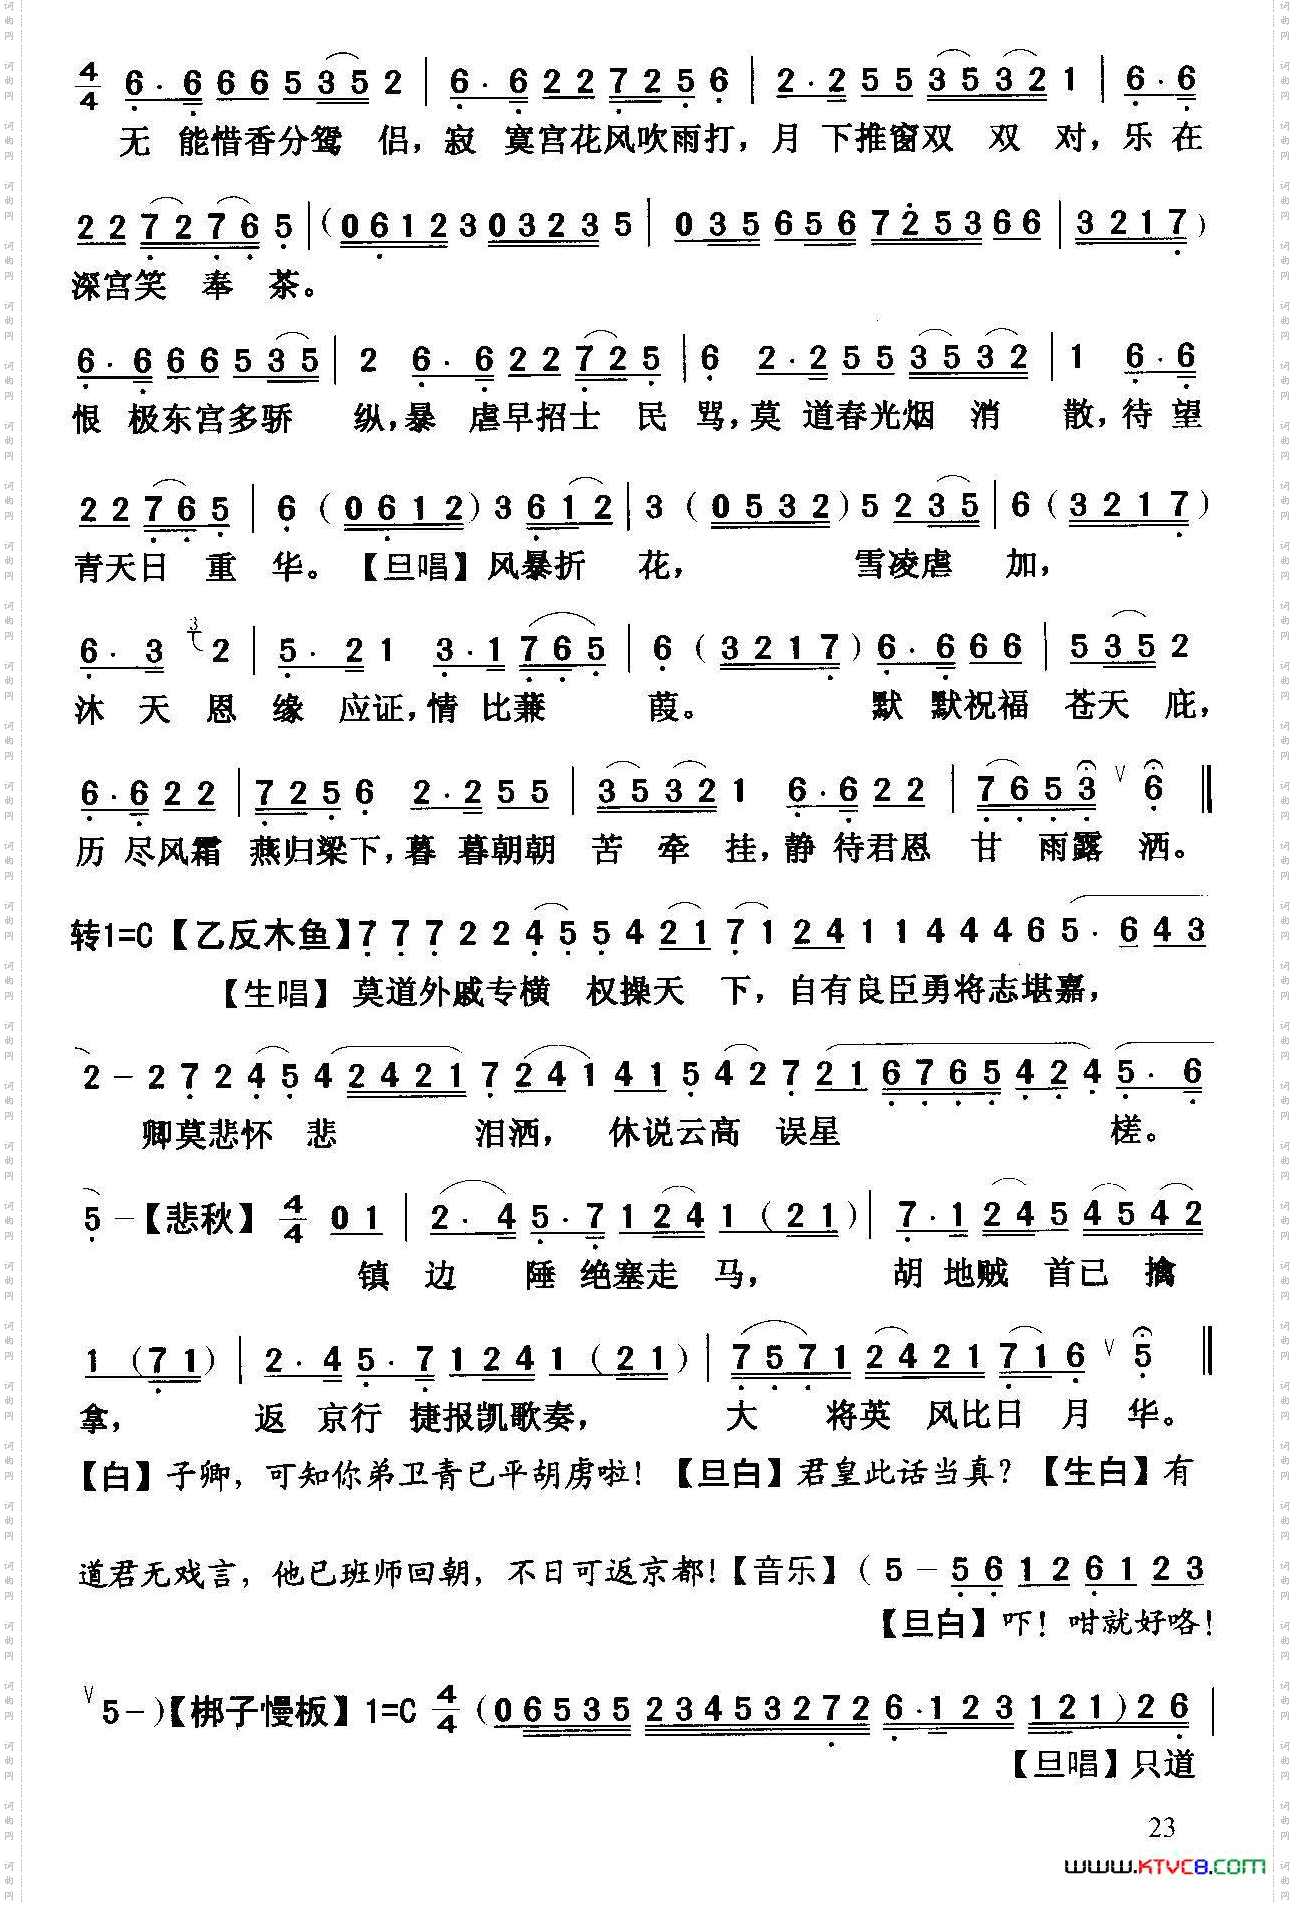 4/4 6·66652 | 6·6227256 | 2·25535321 | 6·6
无 能惜香分鸳 侣，寂 寞宫花风吹雨打，月 下推窗双 双 对，乐 在
2272765 | (06123032 35 | 035656725366 | 3217)
深宫笑 奉 茶。
6·666535 | 2 6·622725 | 6 2·2553532 | 1 6·6
恨 极东宫多骄 纵，暴 虐早招士 民 骂，莫 道春光烟 消 散，待 望
22765 | 6 (0612)3612 | 3 (0532)5235 | 6 (3217)
青天日 重 华。【旦唱】风暴折 花， 雪凌虐 加，
6·3 3 2 | 5·21 3·1765 | 6 (3217)6·666 | 5352
沐 天 恩 缘 应证，情 比蒹 葭。 默 默祝福 苍天 庇，
6·622 | 7256 2·255 | 35321 6·622 | 7653 ∨ 6 ‖
历 尽风霜 燕归梁下，暮 暮朝朝 苦 牵 挂，静 待君恩 甘 雨露 洒。
转1=C【乙反木鱼】7 7 7 2 2 4 5 5 4 2 1 7 1 2 4 1 1 4 4 4 6 5· 6 4 3
【生唱】 莫道外戚专横 权操天 下，自有良臣勇将志堪嘉，
2 – 2 7 2 4 5 4 2 4 2 1 7 2 4 1 4 1 5 4 2 7 2 1 6 7 6 5 4 2 4 5· 6
卿莫悲怀 悲 泪洒， 休说云高 误星 槎。
5 –【悲秋】4/4 01 | 2·45·71241(21) | 7·12454542
镇 边 陲 绝塞走 马， 胡 地贼 首已 擒
1 (71) | 2·45·71241(21) | 75712421716 ∨ 5 ‖
拿， 返 京行 捷报凯歌奏， 大 将英 风比日 月 华。
【白】子卿，可知你弟卫青已平胡虏啦！【旦白】君皇此话当真？【生白】有
道君无戏言，他已班师回朝，不日可返京都！【音乐】（5 – 56126123
【旦白】吓！咁就好咯！
∨ 5–)【梆子慢板】1=C 4/4 (0653523453272 6·123121)26 |
【旦唱】只道
23
www.KTVC8.com